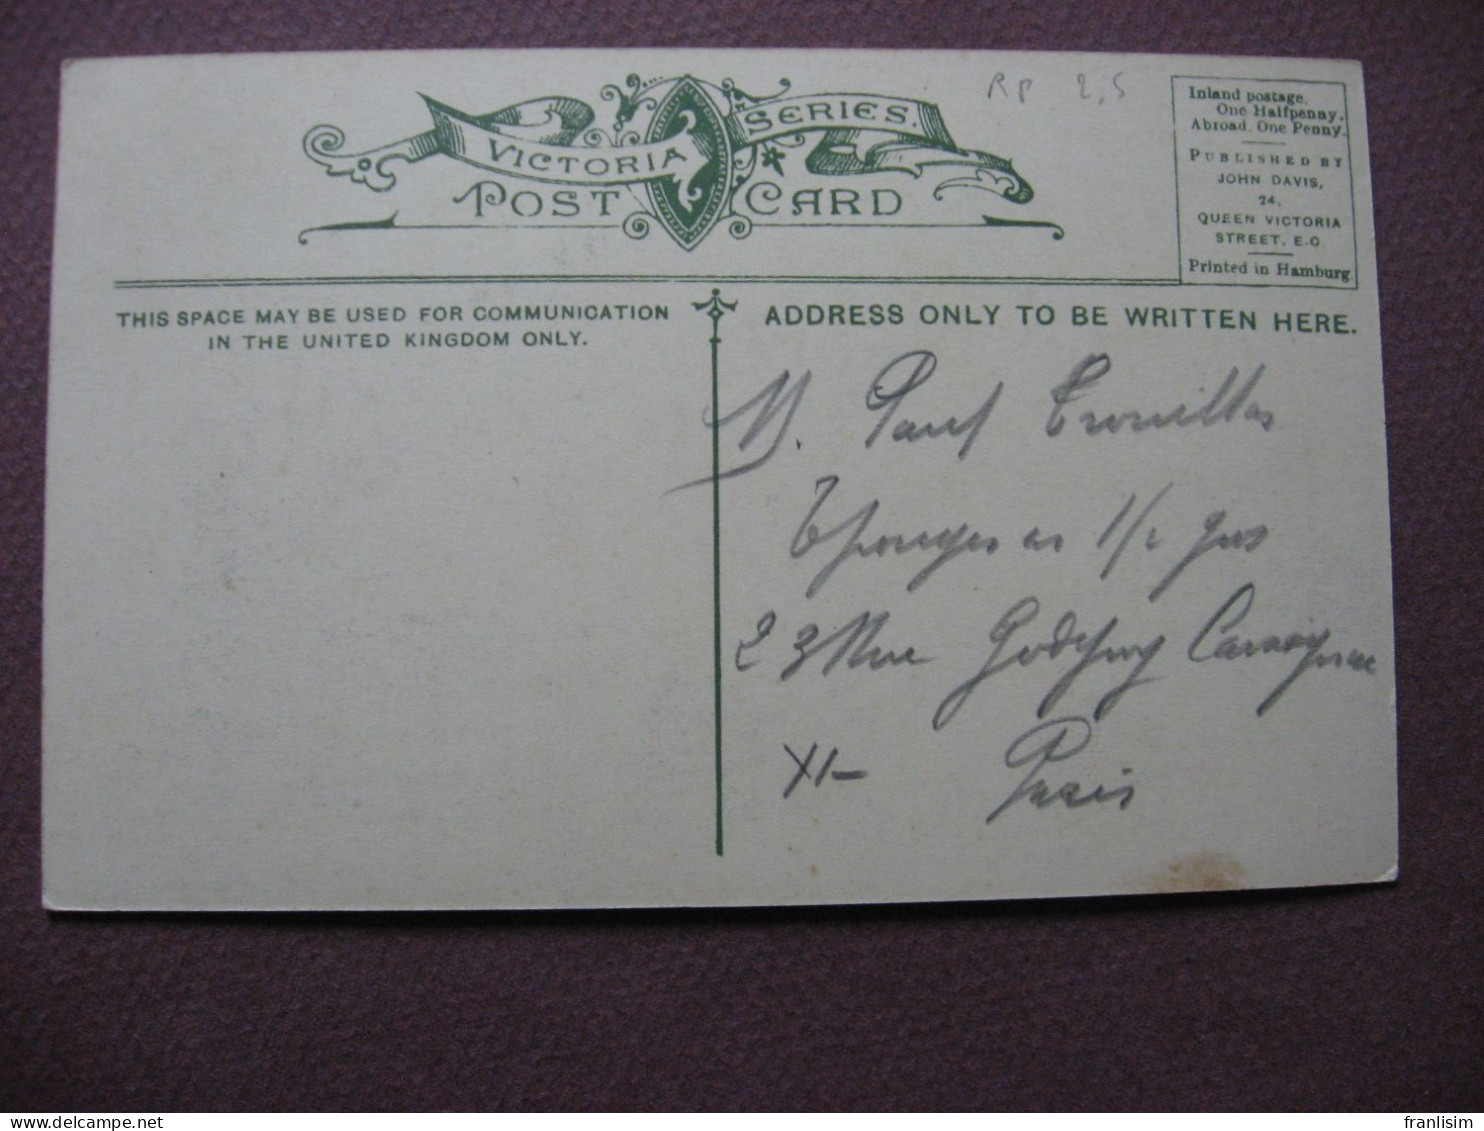 RP 2,5
VICTORIA SERIES.
POST CARD
Inland postage,
One Halfpenny.
Abroad, One Penny.
PUBLISHED BY
JOHN DAVIS,
24,
QUEEN VICTORIA
STREET, E.C
Printed in Hamburg
THIS SPACE MAY BE USED FOR COMMUNICATION
IN THE UNITED KINGDOM ONLY.
ADDRESS ONLY TO BE WRITTEN HERE.
M. Paul Trouillas
Eponges en 1/2 gros
23 Rue Godefroy Cavaignac
XI- Paris
franlisim
delcampe.net